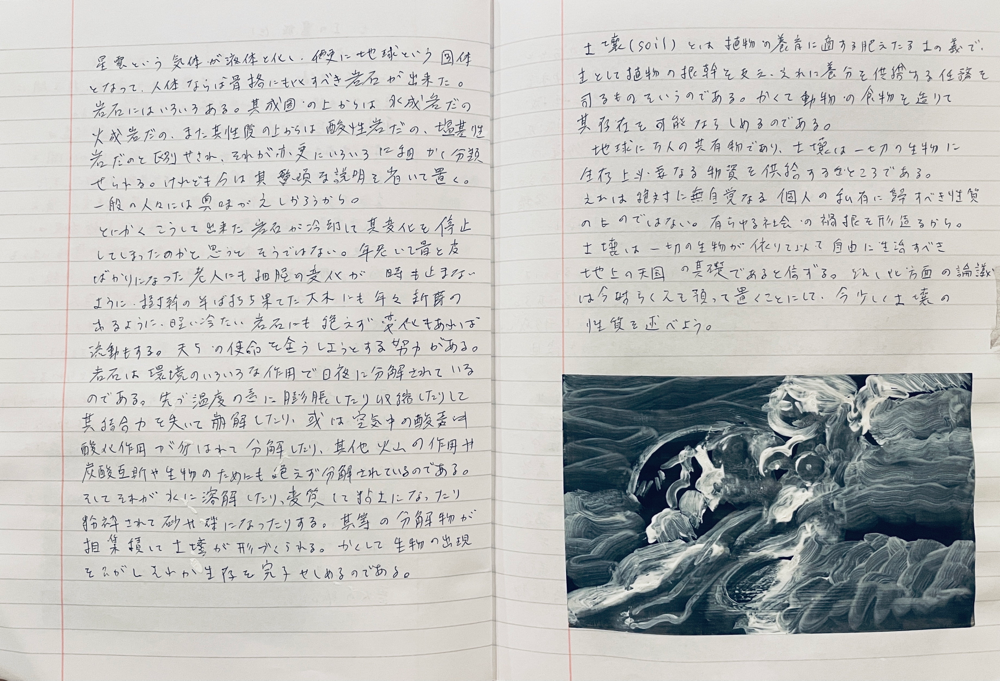 星雲という気体が液体と化し、便に地球という固体
となって、人体ならば骨格にもヒすべき岩石が出来た。
岩石にはいろいろある。其成因の上からは水成岩だの
火成岩だの、また其性質の上からは酸性岩だの、塩基性
岩だのと区別せされ、それが亦更にいろいろに細かく分類
せられる。けれども今は其繁煩な説明を省いて置く。
一般の人々には興味がえしかろうから。
とにかくこうして出来た岩石が冷却して其変化を停止
してしまったのかと思うとそうではない。年老いて骨と皮
ばかりになった老人にも細胞の変化が一時も止まない
ように、
の半ば朽ち果てた大木にも年々新芽の
出るように、堅い冷たい岩石にも絶えず変化もあれば
流動もする。天与の使命を全うしようとする努力がある。
岩石は環境のいろいろな作用で日夜に分解されている
のである。先づ温度の差に膨脹したり収縮したりして
其結合力を失いて崩解したり、或は空気中の酸素に
酸化作用が行はれて分解したり、其他火山の作用や
炭酸瓦斯や生物のためにも絶えず分解されているのである。
そしてそれが水に溶解したり、変質して粘土になったり
粉砕されて砂や礫になったりする。其等の分解物が
相集積して土壌が形づくられる。かくして生物の出現
をうながしそれが生存を完了せしめるのである。
土壌(soil)とは植物の養育に適する肥えたる土の義で、
主として植物の根幹を支え、それに養分を供給する任務を
司るものをいうのである。かくて動物の食物を造りて
其存在を可能ならしめるのである。
地球は万人の共有物であり、土壌は一切の生物に
生存上必要なる物質を供給するところである。
それは絶対に無自覚なる個人の私有に帰すべき性質
のものではない。有らゆる社会の禍根を形造るから。
土壌は一切の生物が依りて以て自由に生活すべき
地上の天国の基礎であると信ずる。どれしせい方面の論議
は今暫らくえて預って置くことにして、今少し土壌の
性質を述べよう。